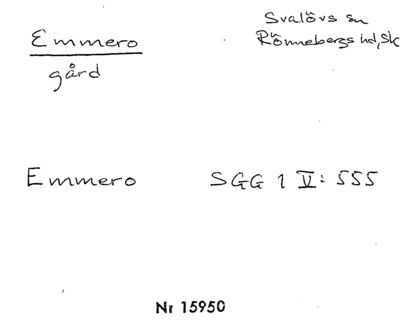 Emmero
gård
Svalövs sn
Rönnebergs hd, Sk
Emmero SGG 1 V: 555
Nr 15950